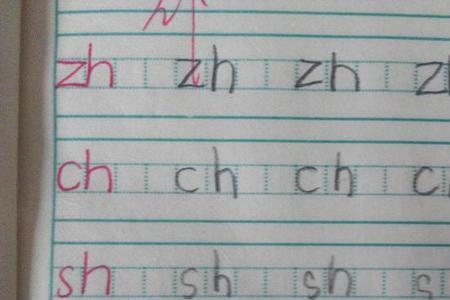 zh zh zh z
ch ch ch c
sh sh sh s